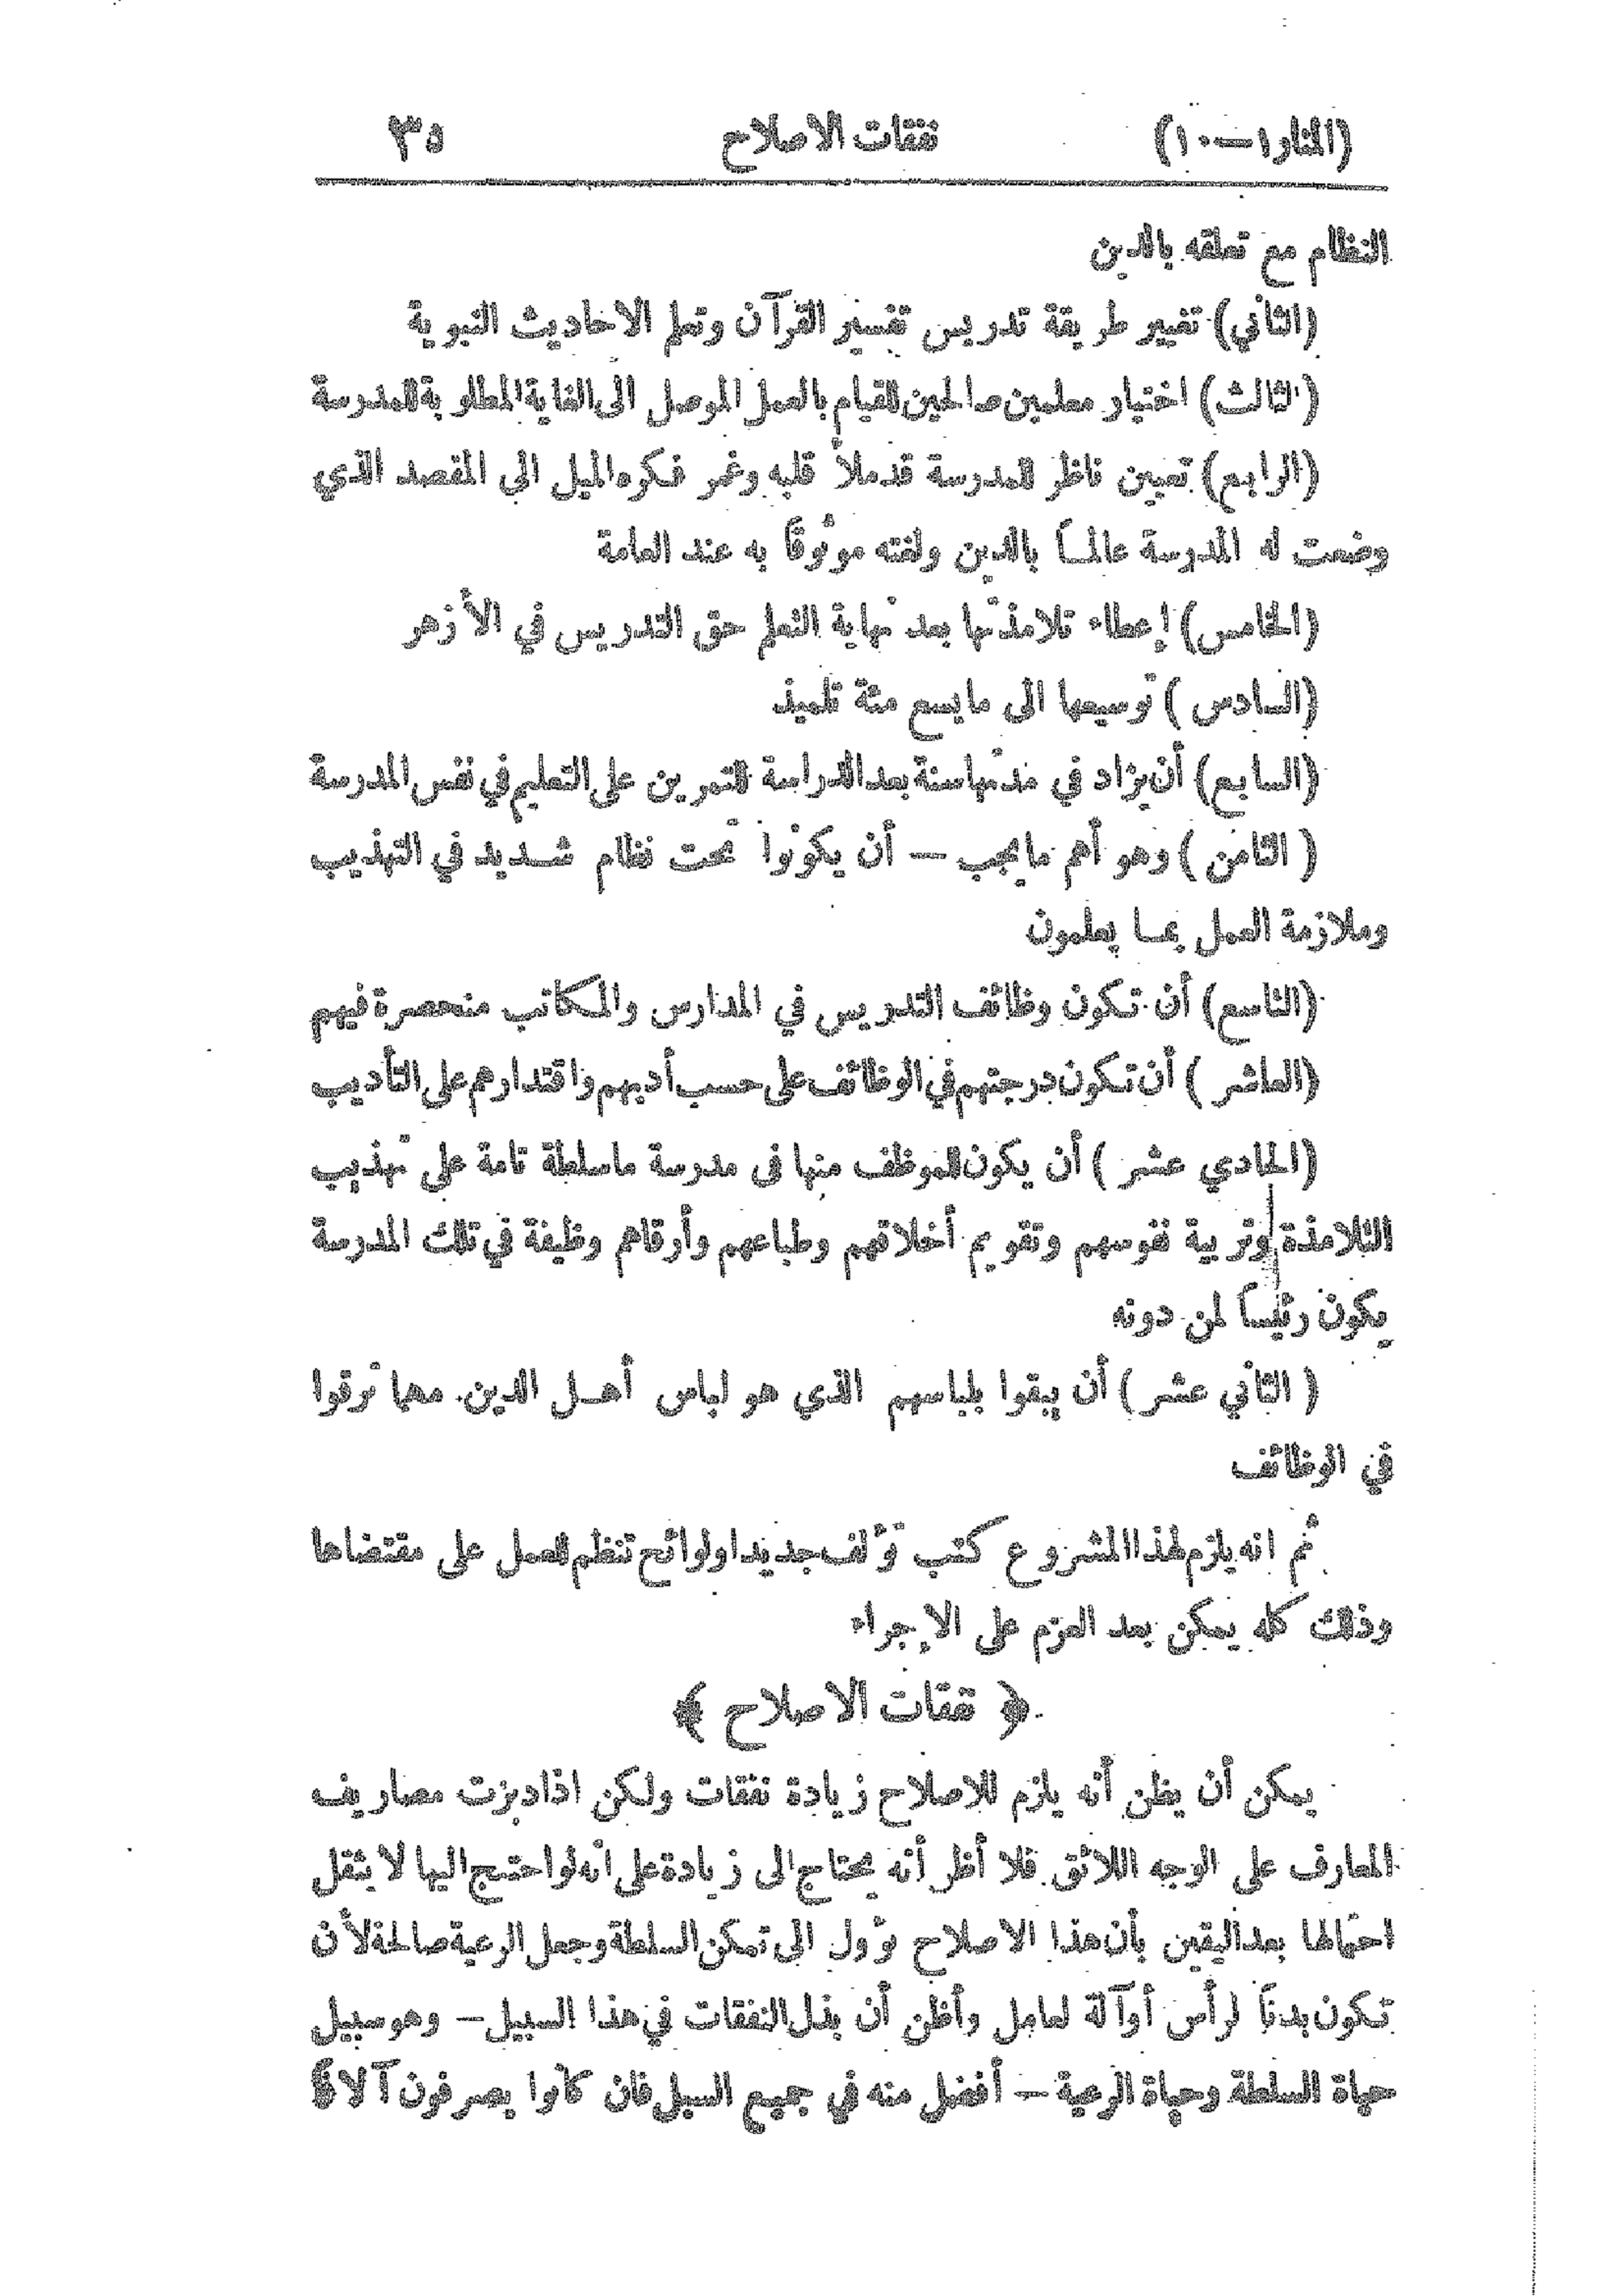 (المنار ١ — ١٠) نفقات الاصلاح ٣٥
النظام مع تعلقه بالدين
(الثاني) تغيير طريقة تدريس تفسير القرآن وتعلم الاحاديث النبوية
(الثالث) اختيار معلمين صالحين للقيام بالعمل الموصل الى الغاية المطلوبة للمدرسة
(الرابع) تعيين ناظر للمدرسة قد ملأ قلبه وغمر فكره الميل الى المقصد الذي
وضعت له المدرسة عالماً بالدين ولغته موثوقاً به عند العامة
(الخامس) إعطاء تلامذتها بعد نهاية التعلم حق التدريس في الأزهر
(السادس) توسيعها الى ما يسع مئة تلميذ
(السابع) أن يزاد في مدتها سنة بعد الدراسة للتمرين على التعليم في نفس المدرسة
(الثامن) وهو أهم ما يجب — أن يكونوا تحت نظام شديد في التهذيب
وملازمة العمل بما يعلمون
(التاسع) أن تكون وظائف التدريس في المدارس والمكاتب منحصرة فيهم
(العاشر) أن تكون درجتهم في الوظائف على حسب أدبهم واقتدارهم على التأديب
(الحادي عشر) أن يكون للموظف منها في مدرسة ما سلطة تامة على تهذيب
التلامذة وتربية نفوسهم وتقويم أخلاقهم وطباعهم وأرقاهم وظيفة في تلك المدرسة
يكون رئيساً لمن دونه
(الثاني عشر) أن يبقوا بلباسهم الذي هو لباس أهل الدين. مهما ترقوا
في الوظائف
ثم انه يلزم لهذا المشروع كتب تؤلف جديدا ولوائح تنظم للعمل على مقتضاها
وذلك كله يمكن بعد العزم على الإجراء
﴿ نفقات الاصلاح ﴾
يمكن أن يظن أنه يلزم للاصلاح زيادة نفقات ولكن اذا دبرت مصاريف
المعارف على الوجه اللائق فلا أظن أنه يحتاج الى زيادة على انه لو احتيج اليها لا يثقل
احتمالها بعد اليقين بأن هذا الاصلاح يؤول الى تمكن السلطة وجعل الرعية صالحة لأن
تكون بدناً لرأس أو آلة لعامل وأظن أن بذل النفقات في هذا السبيل — وهو سبيل
حياة السلطة وحياة الرعية — أفضل منه في جميع السبل فان كانوا يصرفون آلافاً